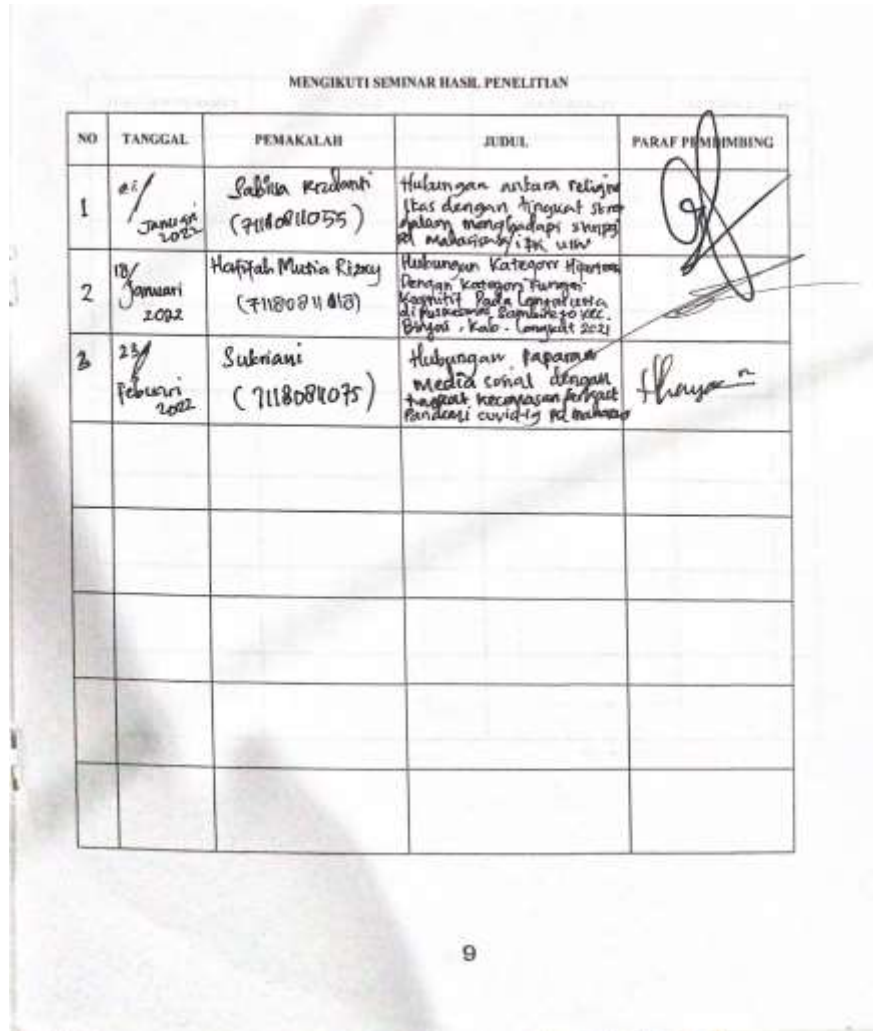 MENGIKUTI SEMINAR HASIL PENELITIAN
NO TANGGAL PEMAKALAH JUDUL PARAF PEMBIMBING
1
Januari
2022
Sabina
(71180811055)
Hubungan antara religiu
sitas dengan tingkat stres
dalam menghadapi skripsi
pd mahasiswa
2
18/
Januari
2022
Hafifah Mutia Rizky
(71180811018)
Hubungan Kategori Hipertensi
Dengan Kategori Fungsi
Kognitif Pada
di puskesmas Kec.
Binjai, Kab. Langkat 2021
3
23/
2022
Sukriani
(71180811075)
Hubungan paparan
media sosial dengan
tingkat kecemasan
Pandemi covid-19 pd
9